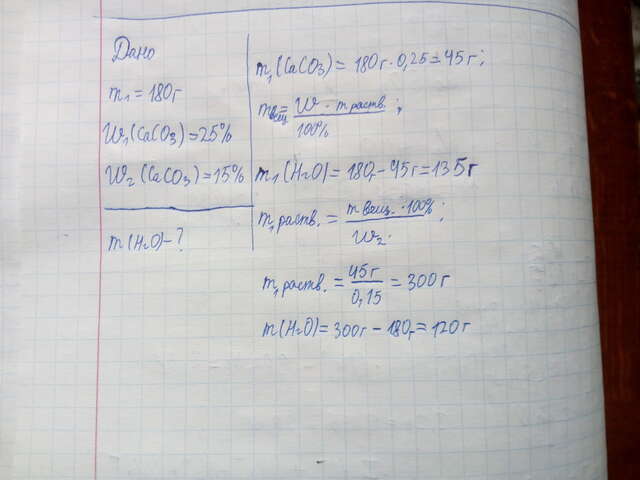 Дано
m₁ = 180г
W₁(CaCO₃)=25%
W₂(CaCO₃)=15%
m(H₂O)-?
m₁(CaCO₃) = 180г · 0,25=45г;
mвещ. = W · m раств. / 100% ;
m₁(H₂O)=180г-45г=135г
m₁ раств. = m вещ. · 100% / W₂. ;
m₁ раств. = 45г / 0,15 = 300г
m(H₂O)=300г-180г=120г